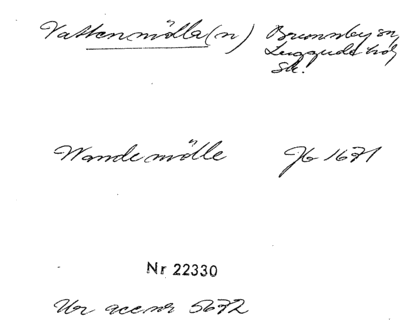 Vattenmölla(n) Brunnby sn
Luggude hd
Sk.
Wandemölle Jb 1671
Nr 22330
Ur acc nr 5672